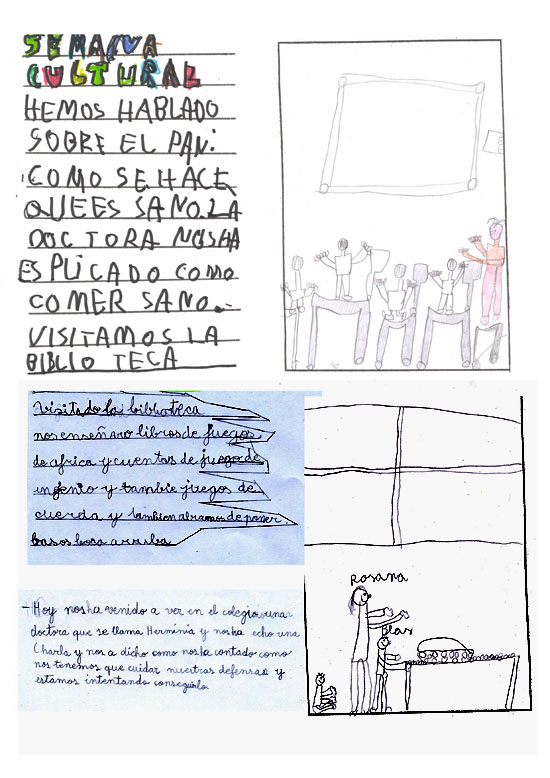 SEMANA
CULTURAL
HEMOS HABLADO
SOBRE EL PAN:
COMO SE HACE,
QUE ES SANO. LA
DOCTORA NOSHA
ESPLICADO COMO
COMER SANO.
VISITAMOS LA
BIBLIOTECA
visitado la biblioteca
nos enseñaro libros de juegos
de africa y cuentas de juegos de
ingenio y tambie juegos de
cuerda y tambien abramos de poner
basos boca arriba
Rosana
Blas
-Hoy nosha venido a ver en el colegio una
doctora que se llama Herminia y nosha echo una
Charla y nos a dicho como nosha contado como
nos tenemos que cuidar nuestras defensas y
estamos intentando conseguirlo